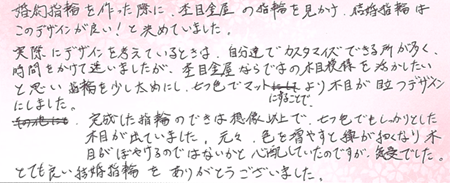 婚約指輪を作った際に、杢目金屋の指輪を見かけ、結婚指輪は
このデザインが良い!と決めていました。
実際にデザインを考えているときは、自分達でカスタマイズできる所が多く、
時間をかけて迷いましたが、杢目金屋ならではの木目模様を活かしたい
と思い指輪を少し太めにし、七つ色でマットにすることで、より木目が目立つデザイン
にしました。
完成した指輪のできは想像以上で、七つ色でもしっかりとした
木目が出ていました。元々、色を増やすと線が細くなり木
目がぼやけるのではないかと心配していたのですが、でした。
とても良い結婚指輪をありがとうございました。